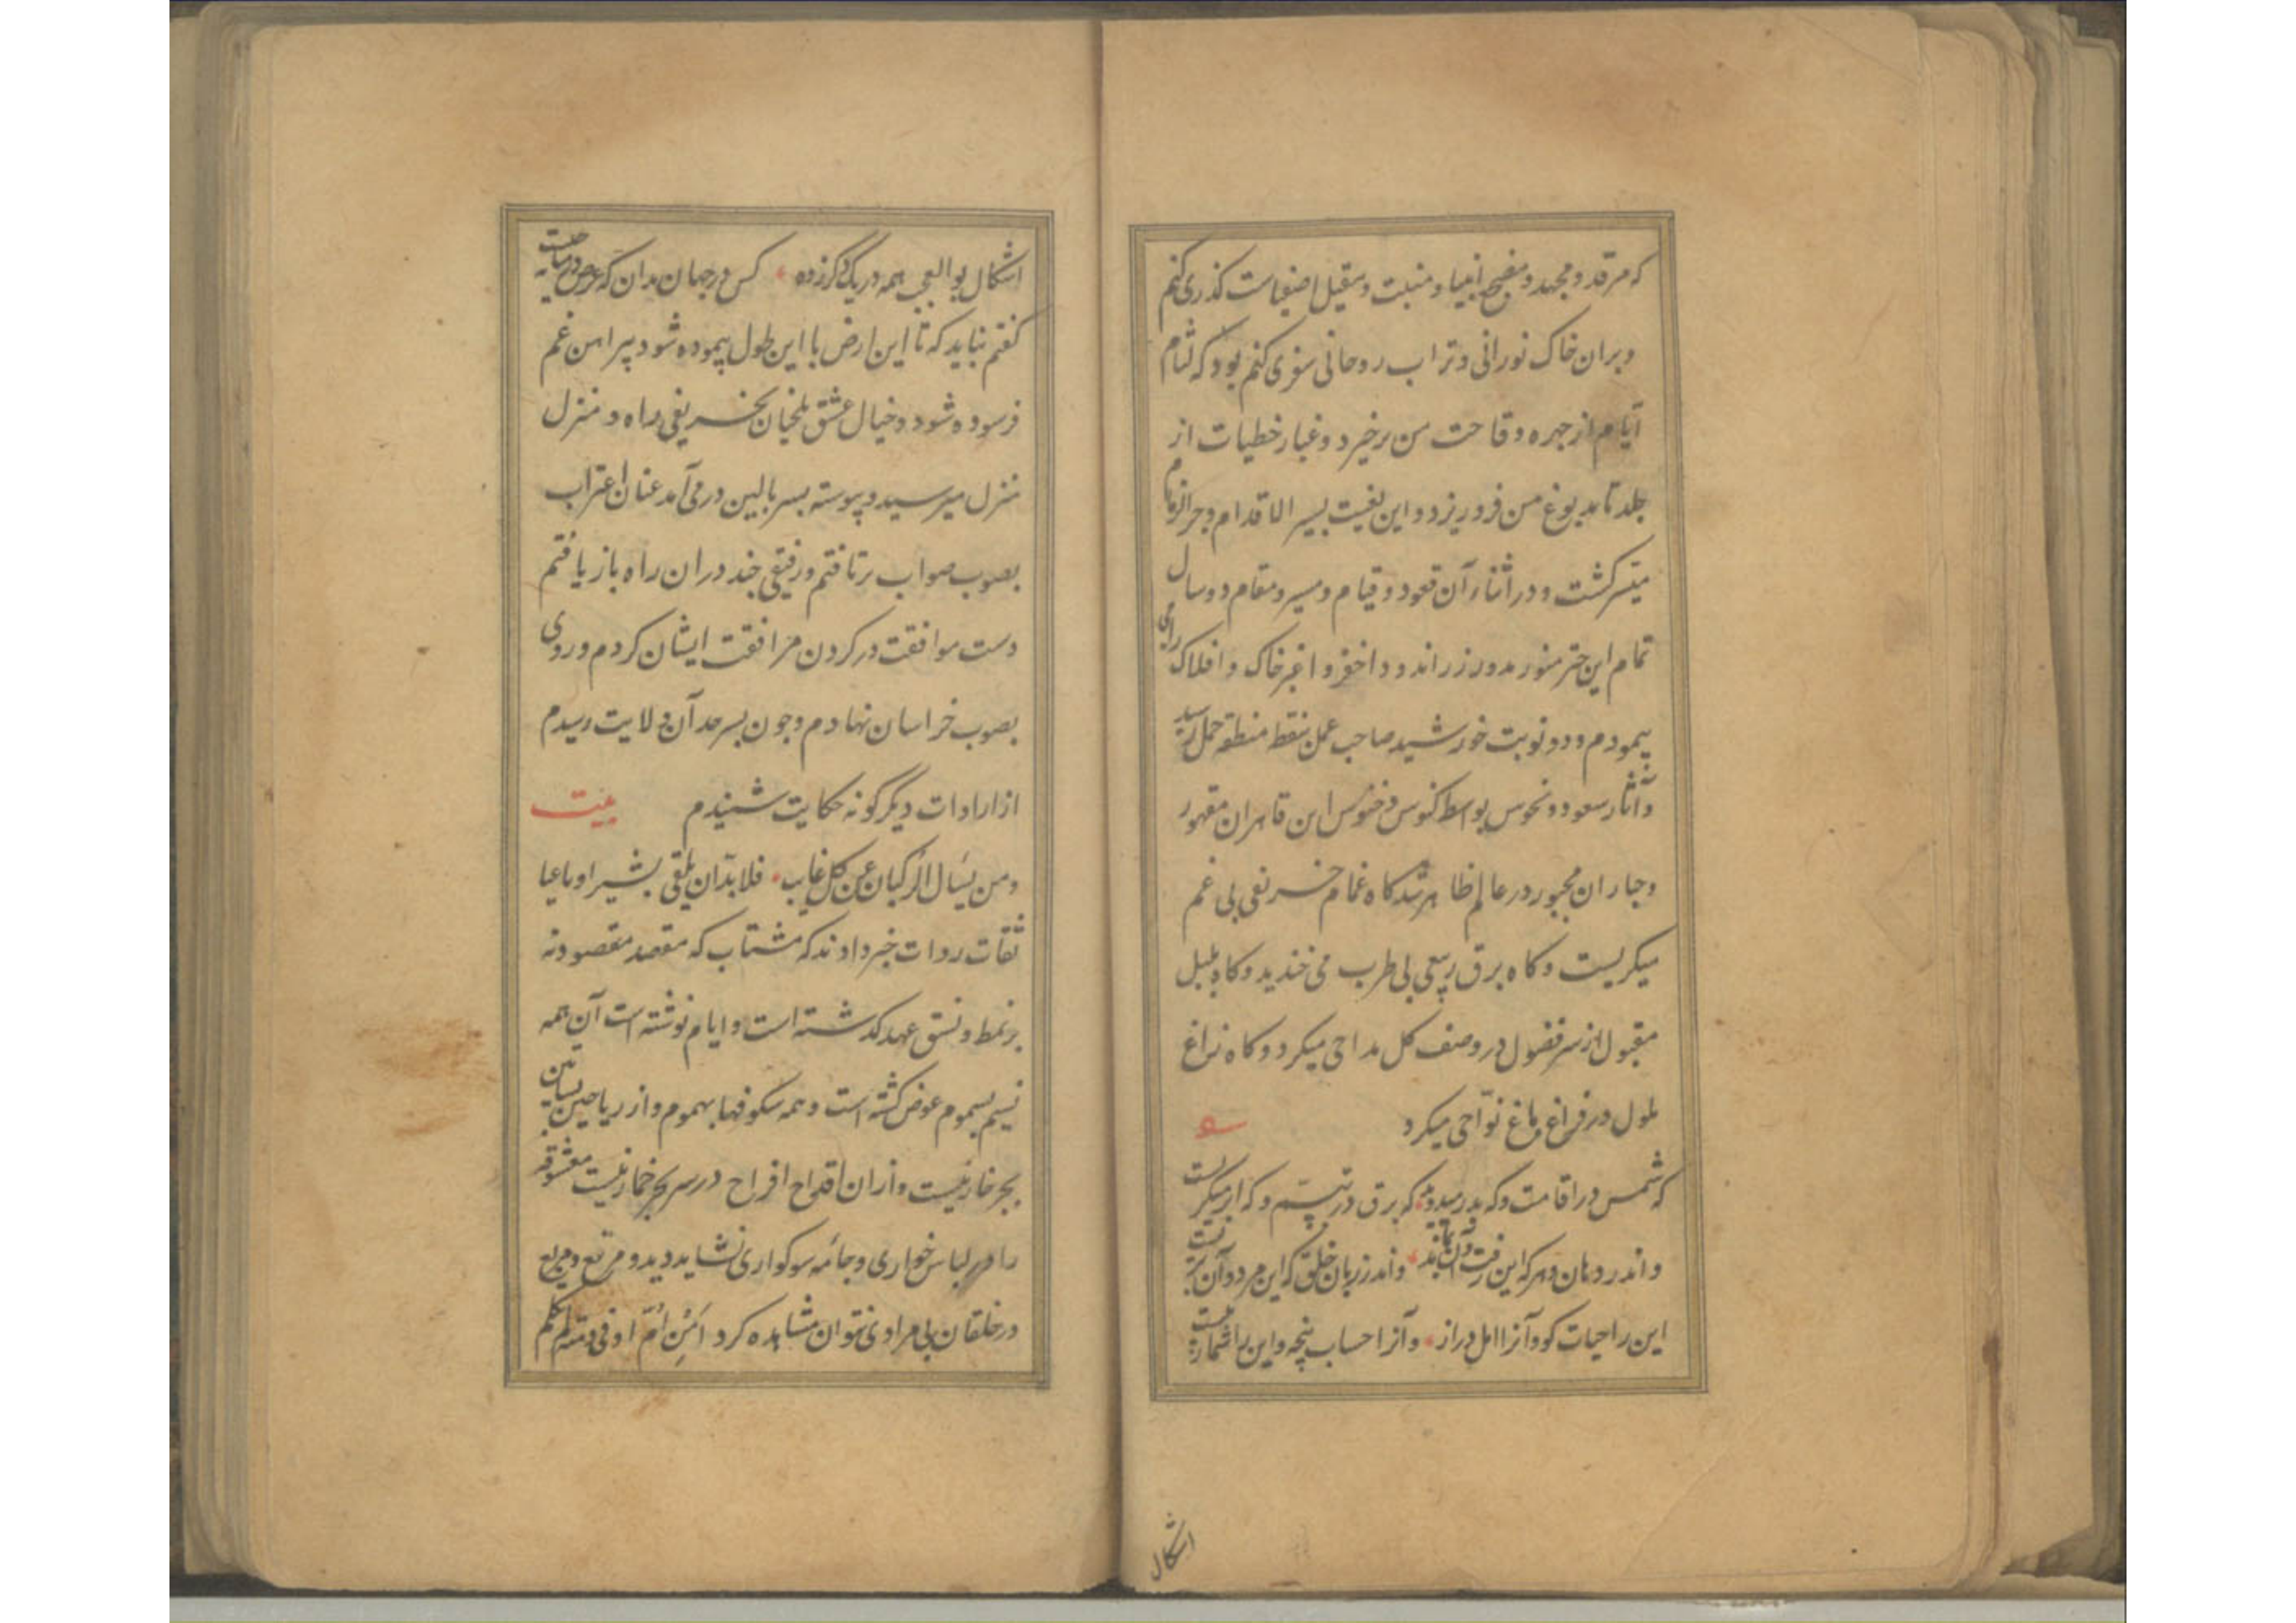 که مرقد و مجهد و مضجع انبیا و منبت و مقیل اصفیاست گذری کنم
و بران خاک نورانی و تراب روحانی سفری کنم بود که لثام
آیام از چهره وقاحت من برخیزد و غبار خطیات از
جلد نامدبوغ من فرو ریزد و این نعیت بسیر الاقدام و جرّ الزمام
میسر گشت و در اثناء آن قعود و قیام و مسیر و مقام دو سال
تمام این منور مدور زراندود اخضر و اغبر خاک و افلاک رابی
بیمودم و دو نوبت خورشید صاحب عمل بنقط منطقه حمل رسید
و آثار سعود و نحوس بواسط کنوس و خنوس این قاهران مقهور
و جباران مجبور در عالم ظاهر شد گاه غمام خریفی بی غم
میگریست و گاه برق ربیعی بی طرب می خندید و گاه بلبل
مقبول از سر فضول در وصف گل مداحی میکرد و گاه زاغ
ملول در فراغ باغ نوّاحی میکرد
که شمس در اقامت و که بدر میدوید که برق در تبسّم و که ابر میگریست
و اندر دهان دهر که این رفت و آن بماند و اندر زبان خلق که این مرد و آن بزیست
این را حیات کو و آنرا امل دراز و آنرا حساب پنجه و این را شماره بیست
اشکال
اشکال بوالعجب همه در یکدگر زده کس در جهان مدان که غرض در میانه چیست
گفتم نباید که تا این ارض با این طول پیموده شود پیراهن عمر
فرسوده شود و خیال عشق بلخیان بخریفی راه و منزل
منزل میرسید و پیوسته بسر بالین در می آمد عنان اغتراب
بصوب صواب برتافتم و رفیقی چند دران راه باز یافتم
دست موافقت در گردن مرافقت ایشان کردم و روی
بصوب خراسان نهادم و چون بسرحد آن ولایت رسیدم
از ارادات دیگر گونه حکایت شنیدم بیت
ومن یسأل الرکبان عن کل غایب فلا بدّ ان یلقی بشیرا و ناعیا
ثقات روات خبر دادند که مشتاب که مقصد مقصود نه
بر نمط و نسق عهد گذشته است و ایام نوشته است آن همه
نسیم بسموم عوض گشته است و همه شکوفها بهموم و از ریاحین بساتین
بجز خار نیست و از ان اقداح افراح در سر بجز خمار نیست معشوقه
را در لباس خواری و جامه سوگواری نشاید دید و مرتع و مربع
در خلقان بی مرادی نتوان مشاهده کرد امن امّ اوفی دمنة لم تکلم